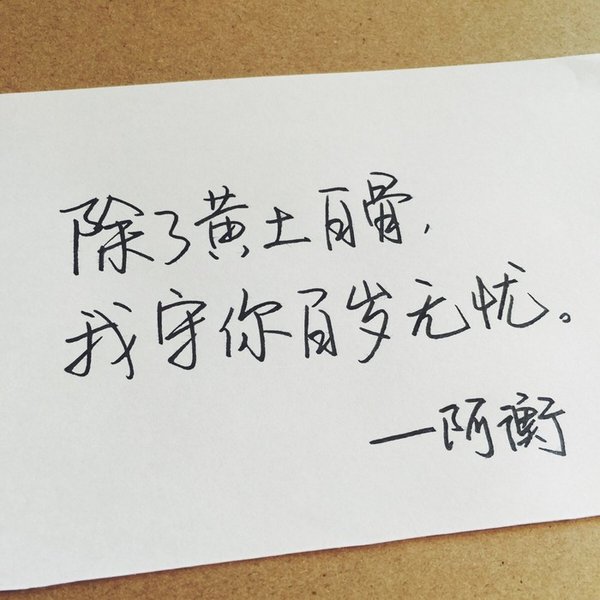 除了黄土百骨，
我守你百岁无忧。
—阿衡